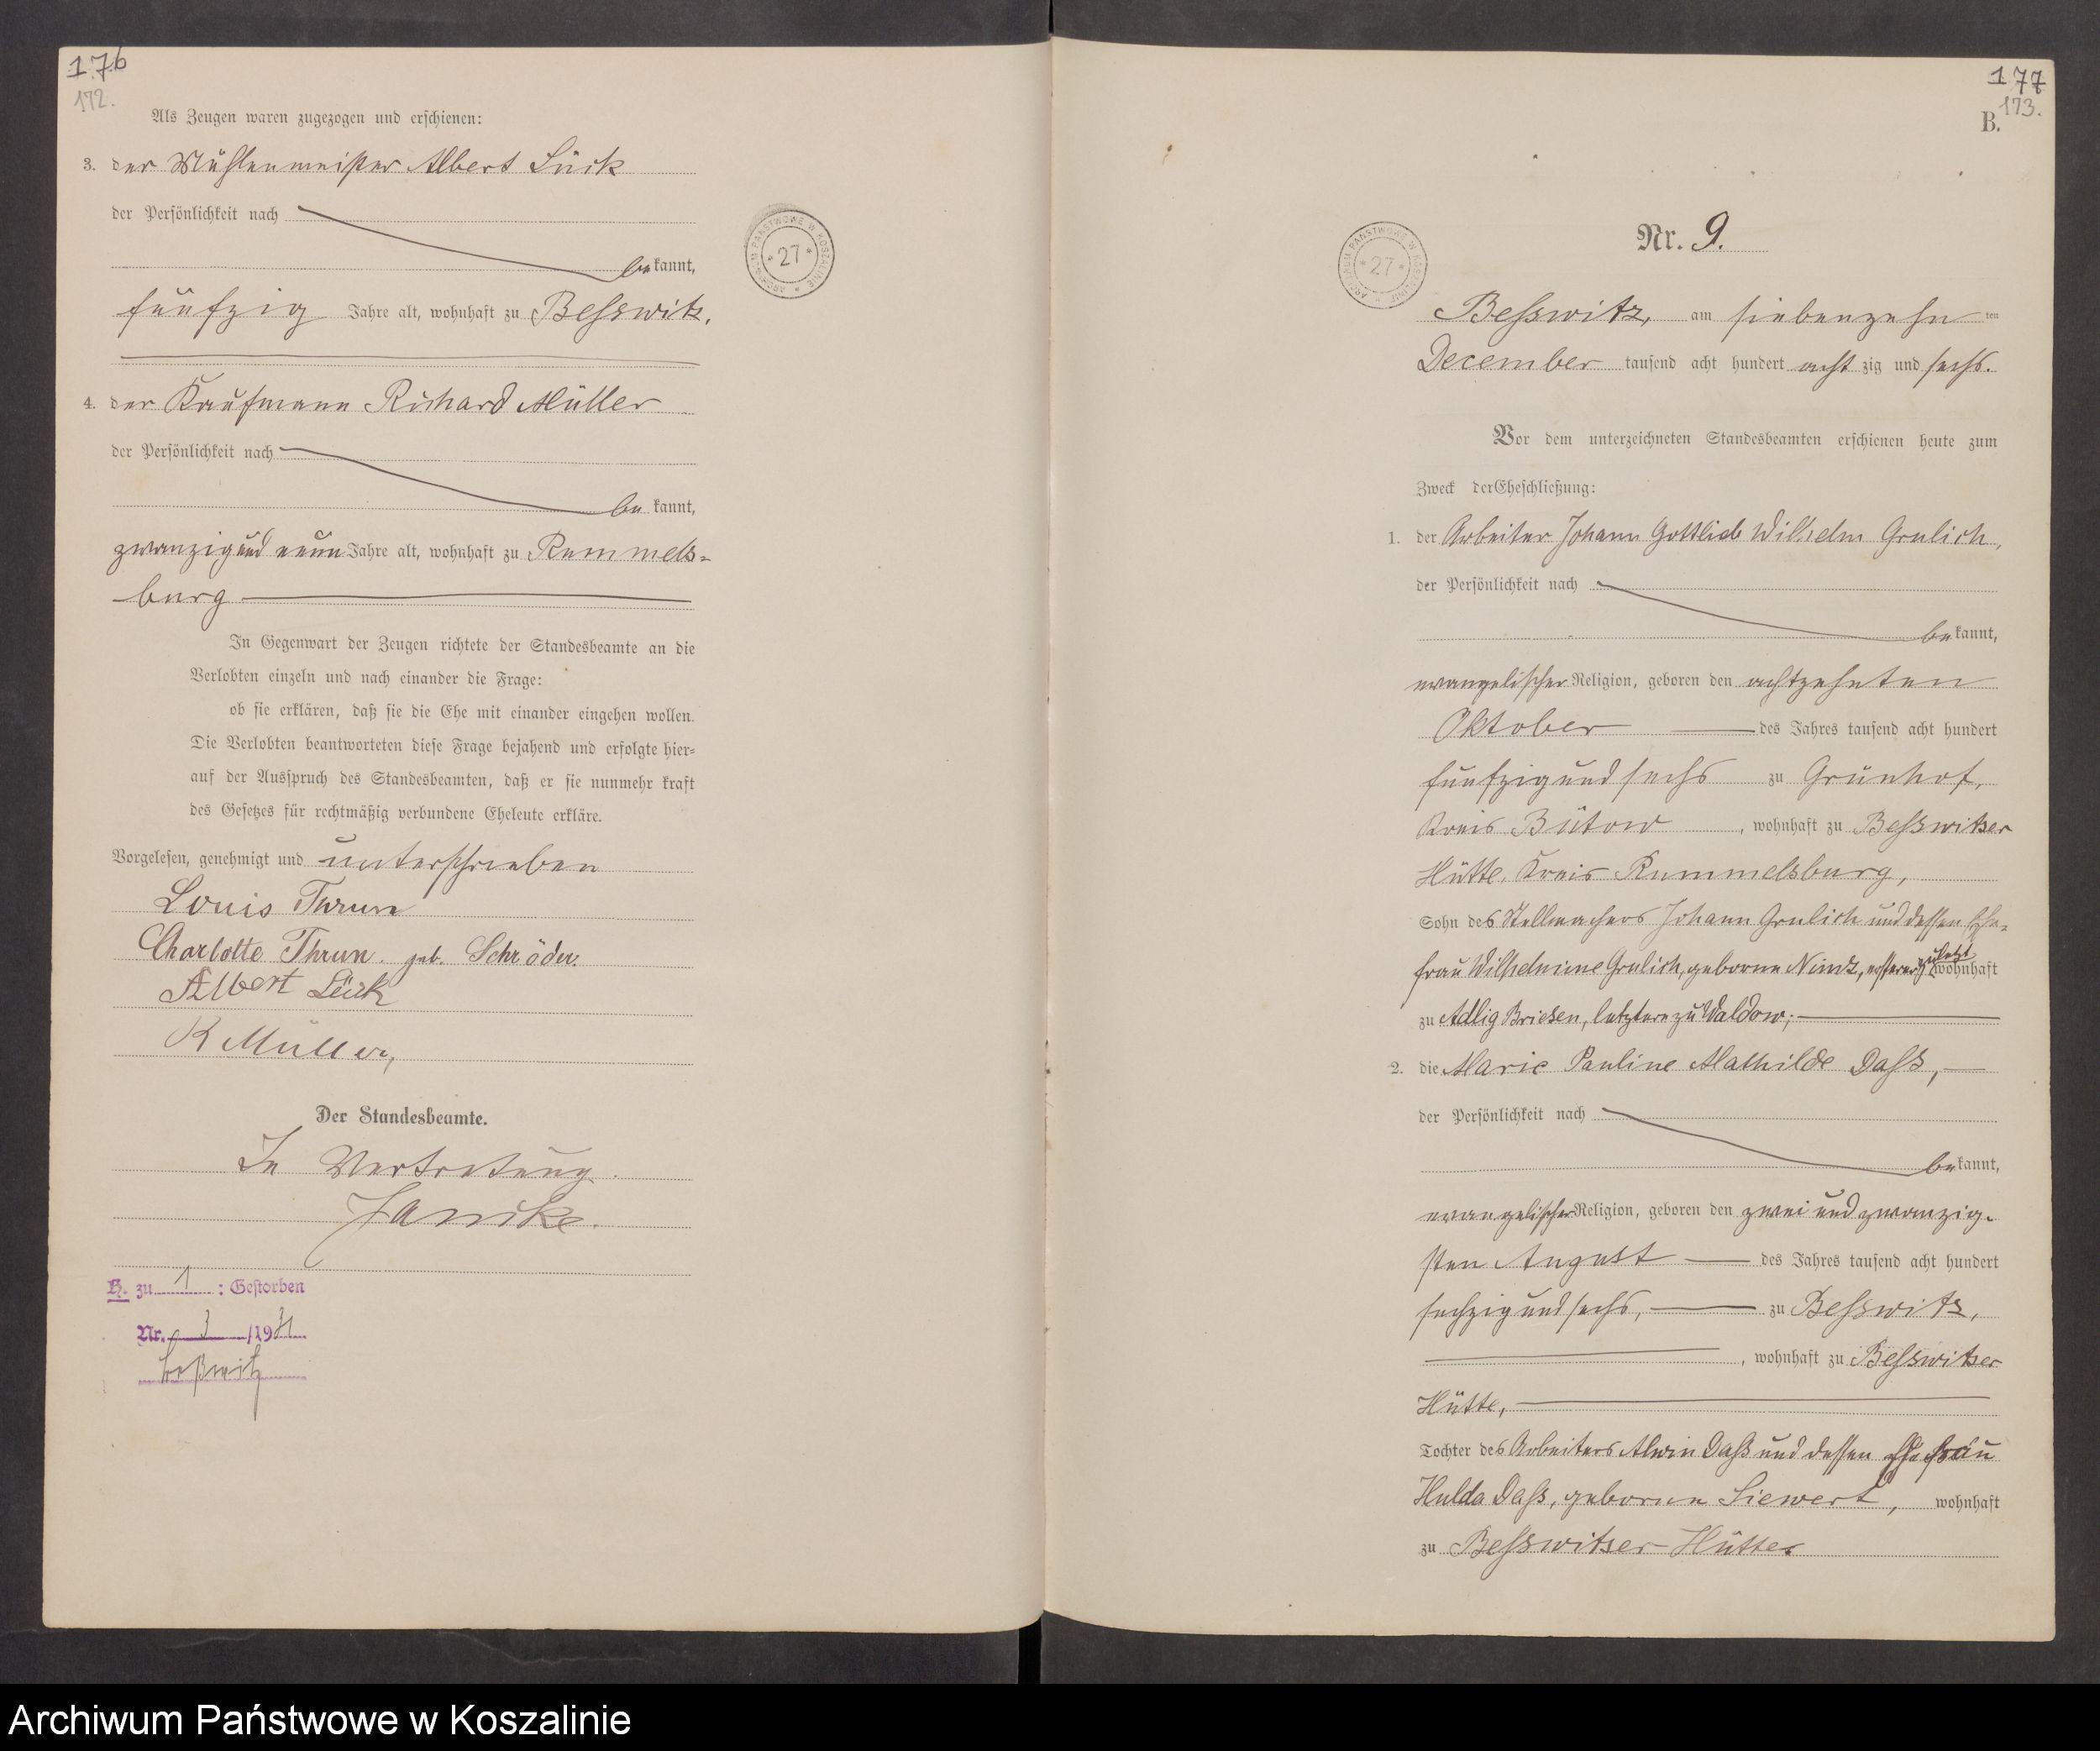 176
172.
Als Zeugen waren zugezogen und erschienen:
3. der Mühlenmeister Albert Lück
der Persönlichkeit nach
bekannt,
fünfzig Jahre alt, wohnhaft zu Besswitz.
4. der Kaufmann Richard Müller
der Persönlichkeit nach
bekannt,
zwanzig und neun Jahre alt, wohnhaft zu Rummels-
burg
In Gegenwart der Zeugen richtete der Standesbeamte an die
Verlobten einzeln und nach einander die Frage:
ob sie erklären, daß sie die Ehe mit einander eingehen wollen.
Die Verlobten beantworteten diese Frage bejahend und erfolgte hier-
auf der Ausspruch des Standesbeamten, daß er sie nunmehr kraft
des Gesetzes für rechtmäßig verbundene Eheleute erkläre.
Vorgelesen, genehmigt und unterschrieben
Louis Thrun
Charlotte Thrun geb. Schröder.
Albert Lück
R Müller,
Der Standesbeamte.
In Vertretung.
H. zu 1 : Gestorben
Nr. 3 /1931
Beßwitz
ARCHIWUM PAŃSTWOWE W KOSZALINIE
* 27 *
177
173.
B.
ARCHIWUM PAŃSTWOWE W KOSZALINIE
* 27 *
Nr. 9.
Besswitz, am siebenzehn ten
December tausend acht hundert achtzig und sechs.
Vor dem unterzeichneten Standesbeamten erschienen heute zum
Zweck der Eheschließung:
1. der Arbeiter Johann Gottlieb Wilhelm Grulich,
der Persönlichkeit nach
bekannt,
evangelischer Religion, geboren den achtzehnten
Oktober des Jahres tausend acht hundert
fünfzig und sechs zu Grünhof,
Kreis Bütow, wohnhaft zu Besswitzer
Hütte, Kreis Rummelsburg,
Sohn des Stellmachers Johann Grulich und dessen Ehe-
frau Wilhelmine Grulich, geborne Nimz, ersterer zuletzt wohnhaft
zu Adlig Briesen, letztere zu Waldow;
2. die Marie Pauline Mathilde Dass,
der Persönlichkeit nach
bekannt,
evangelischer Religion, geboren den zwei und zwanzig-
sten August des Jahres tausend acht hundert
sechzig und sechs, zu Besswitz,
, wohnhaft zu Besswitzer
Hütte,
Tochter des Arbeiters Alwin Dass und dessen Ehefrau
Hulda Dass, geborne Siewert, wohnhaft
zu Besswitzer Hütte.
Archiwum Państwowe w Koszalinie